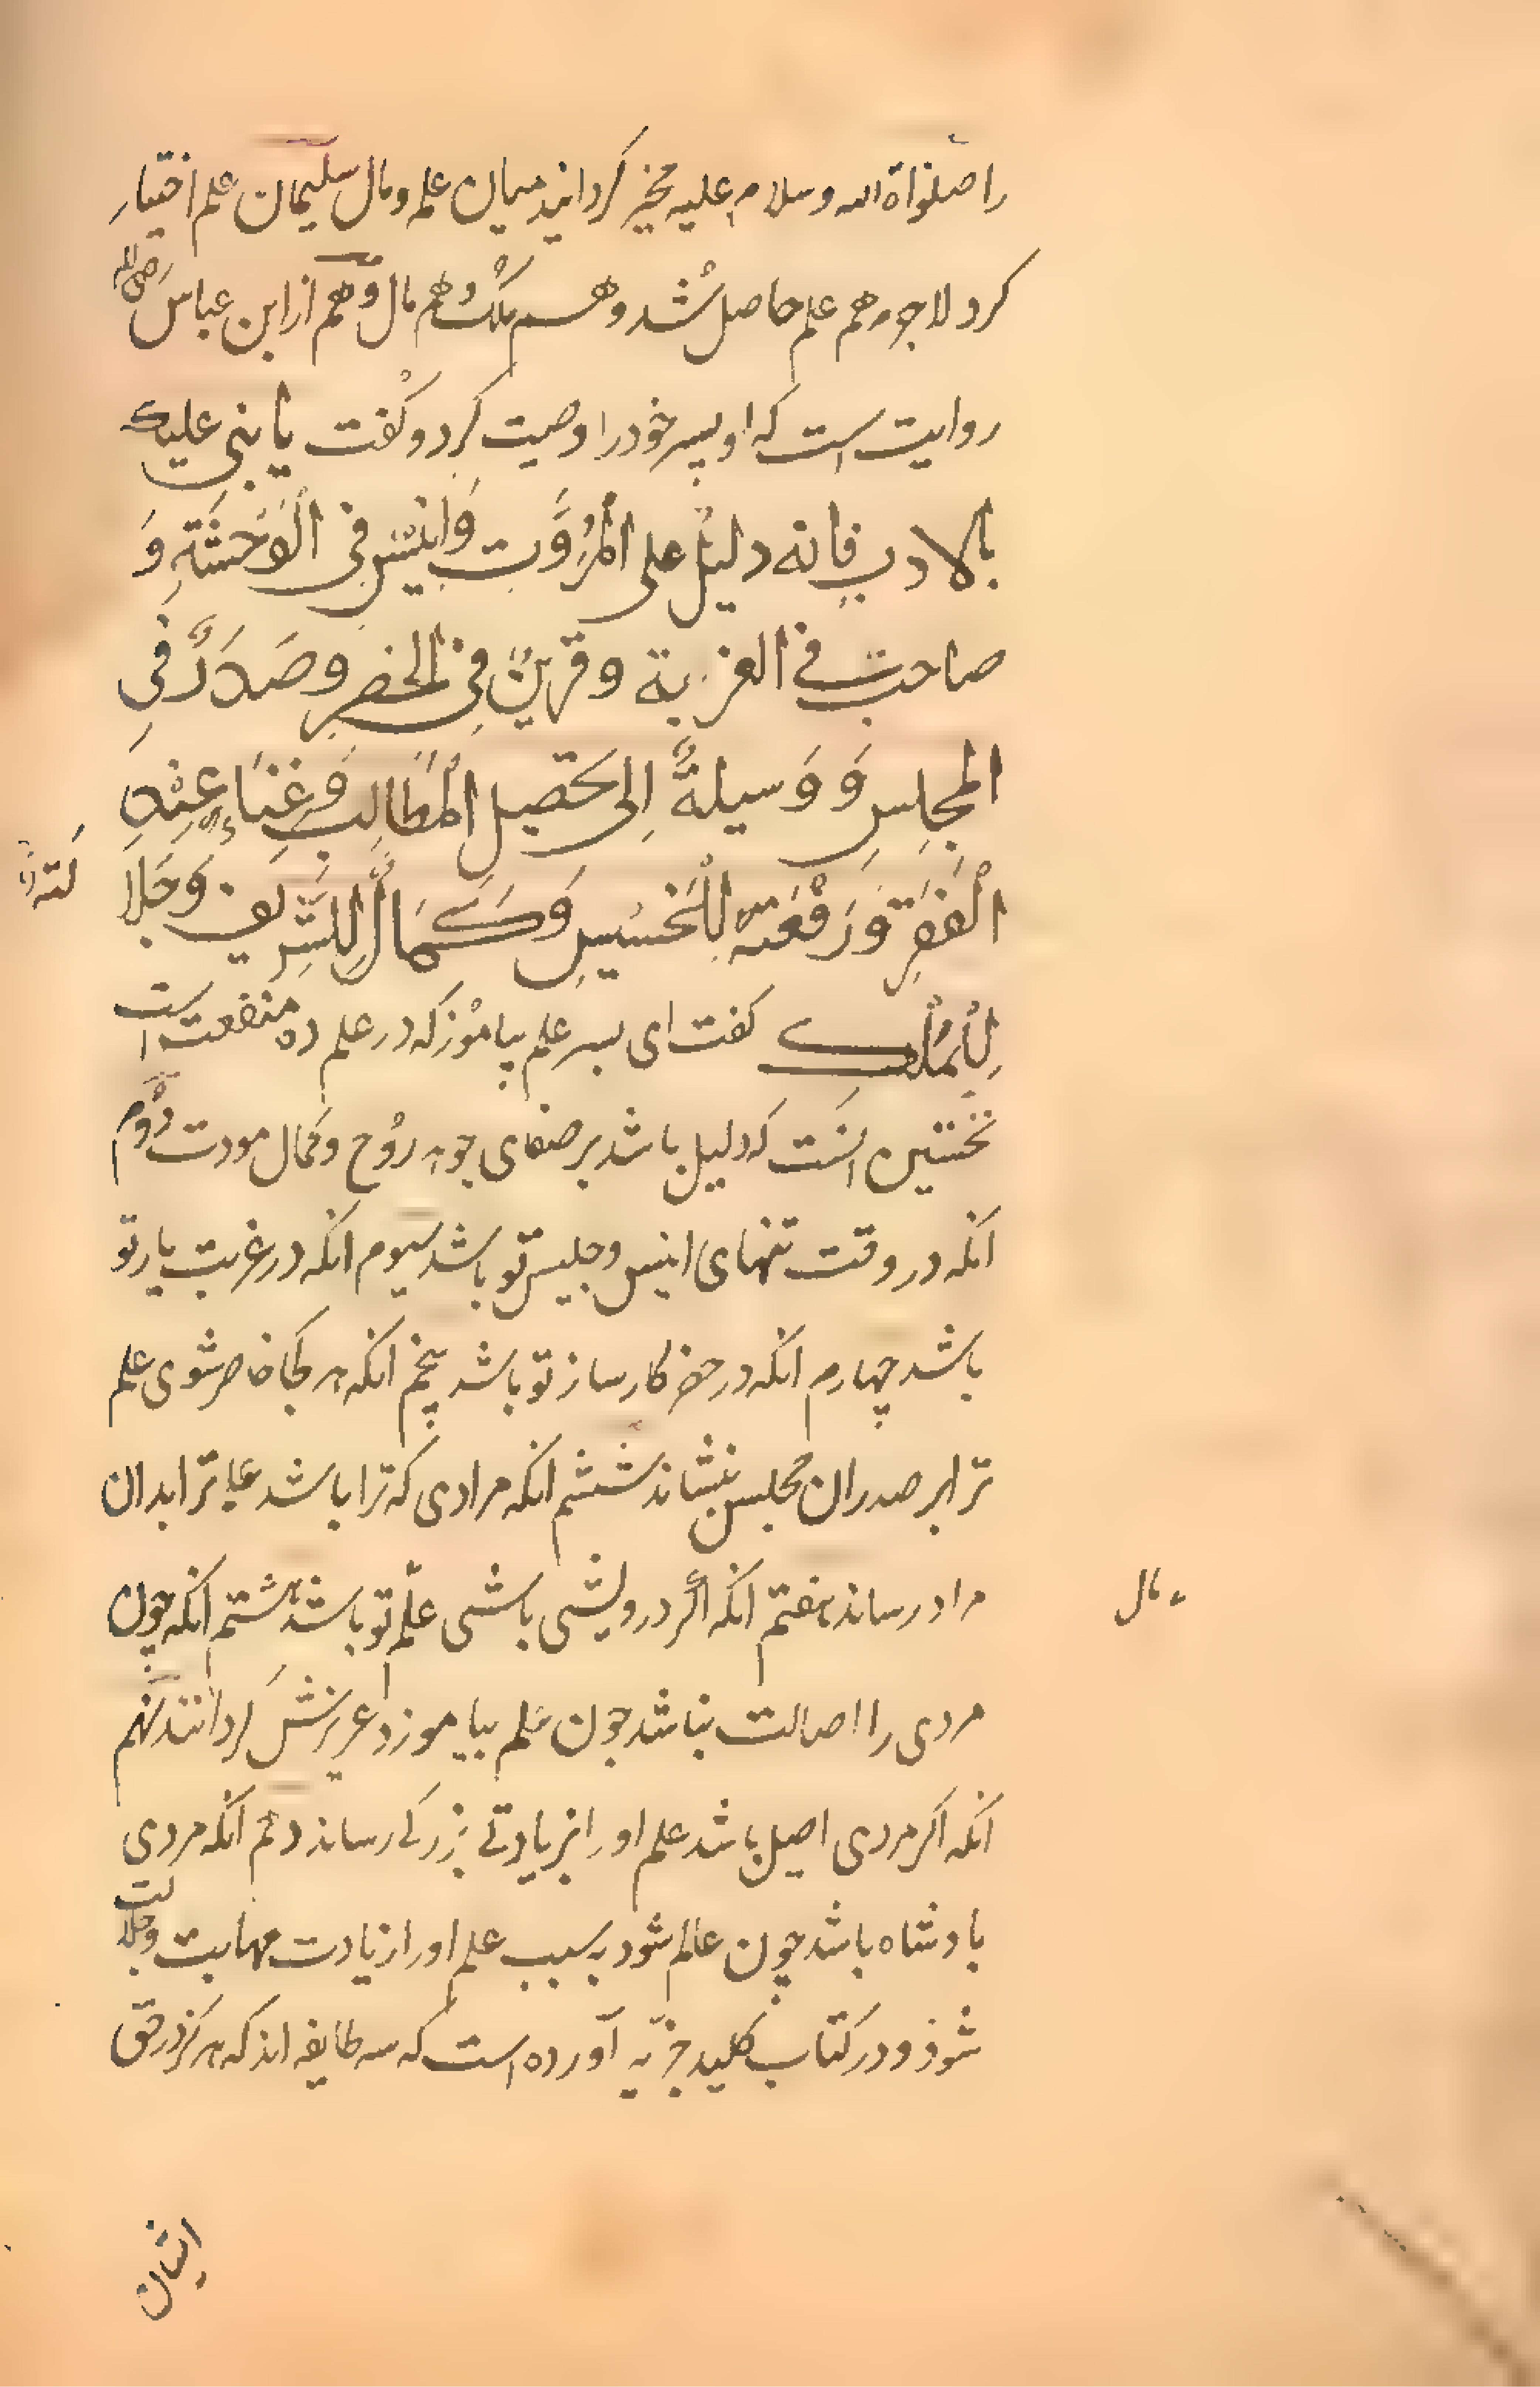 را صلواة الله وسلام علیه مخیر گردانید میان علم و مال سلیمان علم اختیار
کرد لاجرم هم علم حاصل شد و هم ملک و هم مال و هم از ابن عباس رضی الله
روایت است که او پسر خود را وصیت کرد و گفت یا بنی علیک
بالادب فانه دلیل علی المُرُوَّت وَانیس فی الْوَحشَةِ وَ
صاحب فی الغربة وقرین فِی الحضر وصَدرٌ فی
المجلِسِ وَ وَسیلةٌ اِلی تحصیل المَطَالِبِ وَغِنَاء عِنْدِ
الْفَقرِ وَرَفْعَة لِلْخَسیسِ وَكَمَالٌ لِلشَّرِیف وَجَلا
لتة
لِلْمَلِك کفت ای پسر علم بیاموز که در علم ده منفعت است
نخستین انست که دلیل باشد بر صفای جوهر روح و کمال مودت دوم
انکه در وقت تنهای انیس و جلیس تو باشد سیوم انکه در غربت یار تو
باشد چهارم انکه در حضر کارساز تو باشد پنجم انکه هر کجا حاضر شوی علم
ترا بر صدران مجلس بنشاند ششم انکه مرادی که ترا باشد علم ترا بدان
مراد رساند هفتم انکه اگر درویشی باشی علم تو باشد هشتم انکه چون
مال
مردی را اصالت نباشد چون علم بیاموزد عزیزش گردانند نهم
انکه اکر مردی اصیل باشد علم او را بزیادتی بزرکی رساند دهم انکه مردی
بادشاه باشد چون عالم شود به سبب علم او را زیادت مهابت و جلالت
شود و در کتاب کلید آورده است که سه طایفه اند که هرکز در حق
ایشان